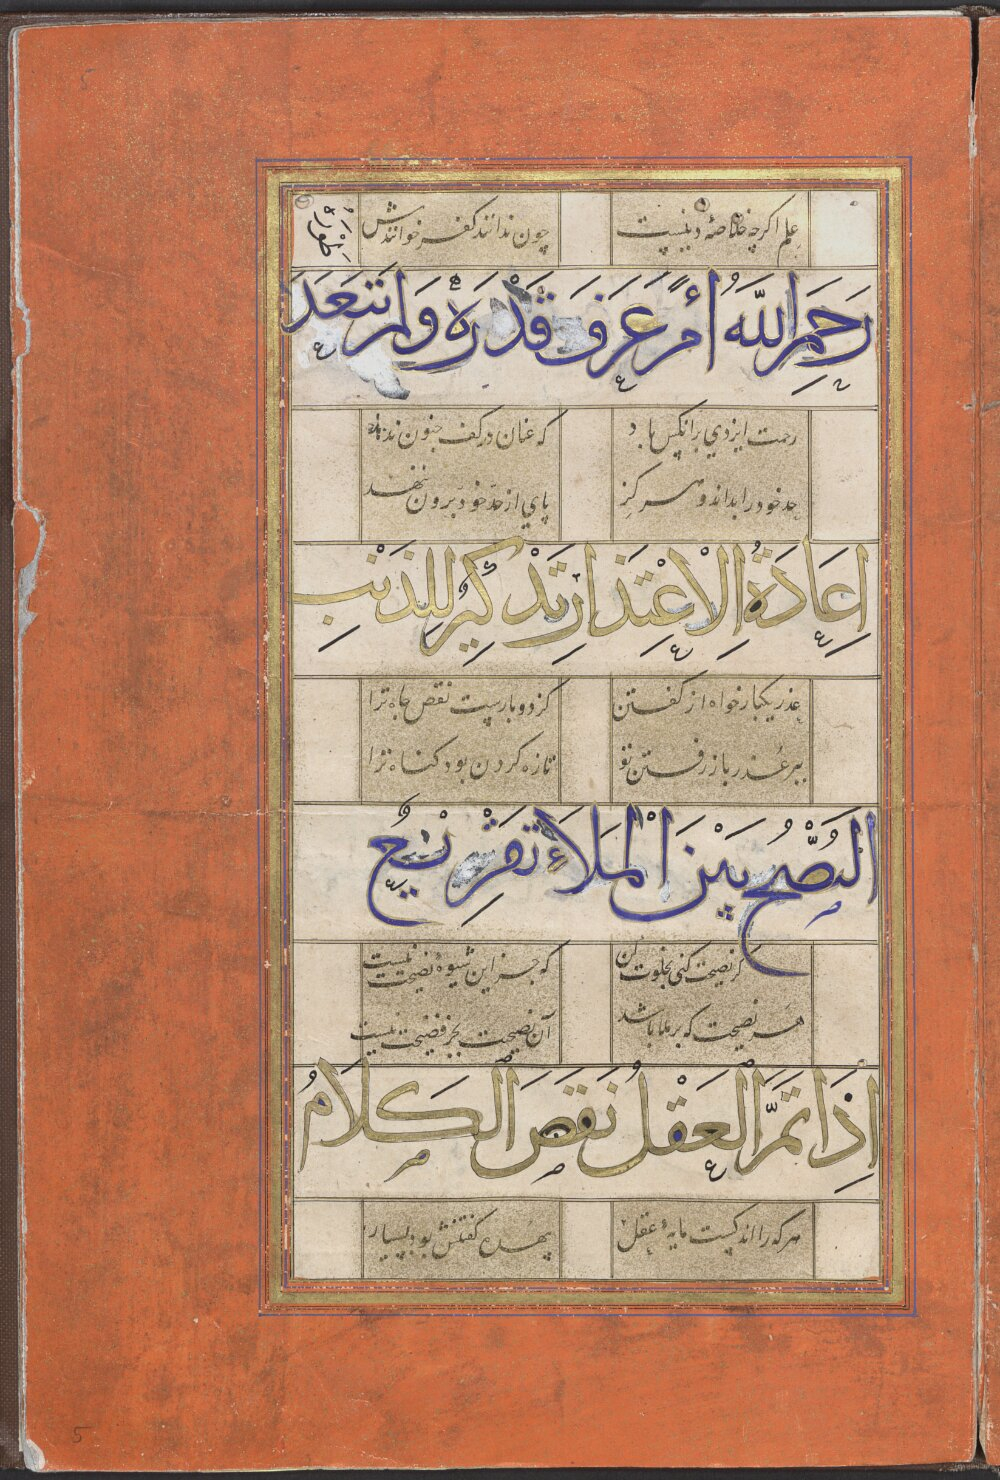 علم اکرچه خلاصهٔ دینیست چون ندانند کفر خوانندش
رَحِمَ اللهُ أمرَءً عَرَفَ قَدْرَهُ وَلَمْ یَتَعَدَّ
طَوْرَهُ
رحمت ایزدی برانکس باد که عنان در کف جنون ندهد
حد خود را بداند و هرکز پای از حد خود برون ننهد
اِعَادَةُ الْاِعْتِذَارِ تَذْکِیرٌ لِلذَنْبِ
عذر یکبار خواه از کفتن کز دوبارست نقص جاه ترا
بر عذر باز رفتن تو تازه کردن بود کناه ترا
النُّصْحُ بَیْنَ الْمَلَاءِ تَقْرِیْعٌ
کر نصیحت کنی بخلوت کن که جز این شیوهٔ نصیحت نیست
هر نصیحت که برملا باشد آن نصیحت بجز فضیحت نیست
اِذَا تَمَّ الْعَقْلُ نَقَصَ الْکَلَامُ
هرکه را اندکیست مایهٔ عقل بیهده کفتنش بود بسیار
5